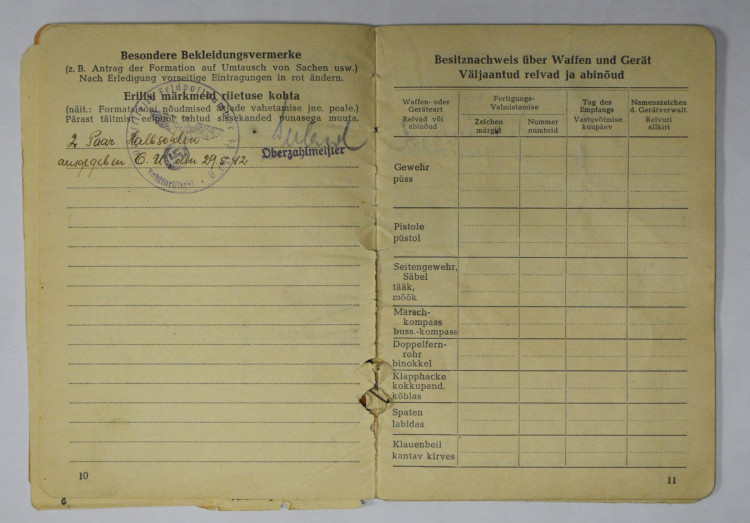 Besondere Bekleidungsvermerke
(z. B. Antrag der Formation auf Umtausch von Sachen usw.)
Nach Erledigung vorseitige Eintragungen in rot ändern.
Erilisi märkmeid riietuse kohta
(näit.: Formatsiooni nõudmised asjade vahetamise jne. peale.)
Pärast täitmist eelpool tehtud sissekanded punasega muuta.
2 Paar Halbsocken
ausgegeben O. U. den 29.5.42
Oberzahlmeister
10
Besitznachweis über Waffen und Gerät
Väljaantud relvad ja abinõud
Waffen- oder Geräteart
Relvad või abinõud
Fertigungs-
Valmistamise
Zeichen
märgid
Nummer
numbrid
Tag des Empfangs
Vastuvõtmise kuupäev
Namenszeichen d. Gerätverwalt.
Relvuri allkiri
Gewehr
püss
Pistole
püstol
Seitengewehr,
Säbel
tääk,
mõõk
Marsch-
kompass
buss.-kompass
Doppelfern-
rohr
binokkel
Klapphacke
kokkupand.
kõblas
Spaten
labidas
Klauenbeil
kantav kirves
11